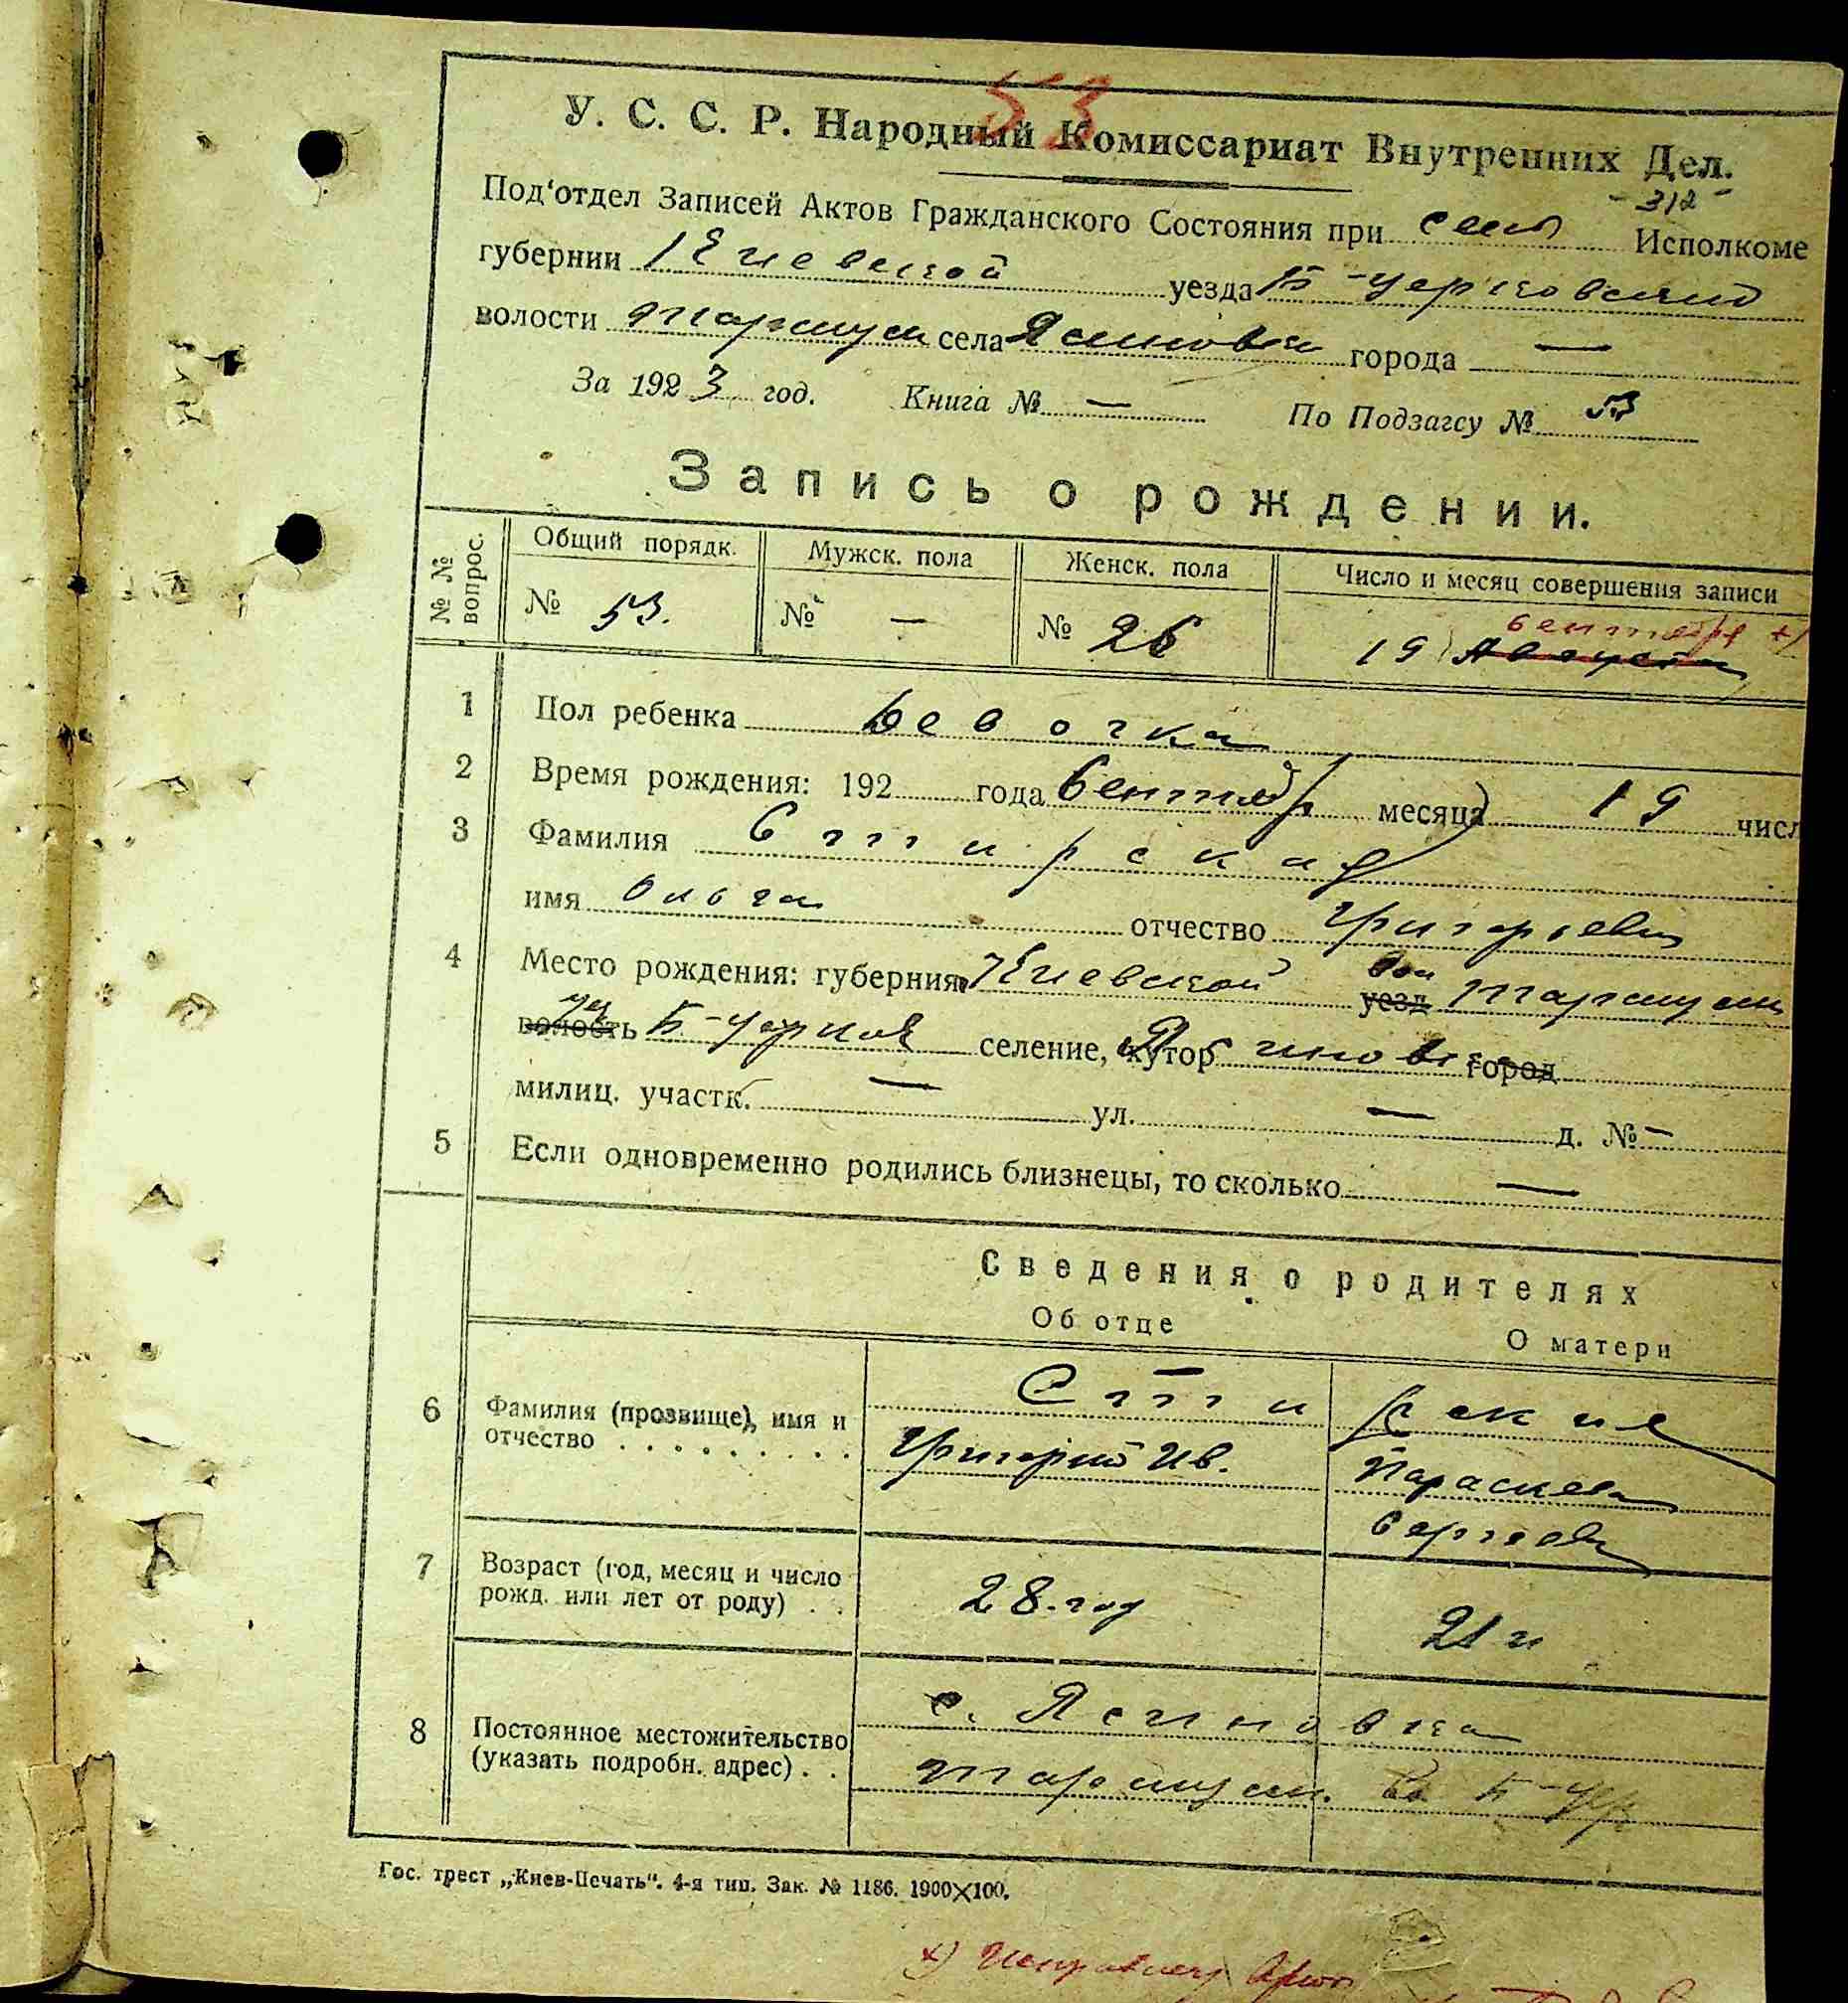 53
У. С. С. Р. Народный Комиссариат Внутренних Дел.
- 312 -
Под'отдел Записей Актов Гражданского Состояния при сел Исполкоме
губернии Киевской уезда Б-Церковский
волости Таращ села Ясиновки города —
За 1923 год. Книга № — По Подзагсу № 53
Запись о рождении.
№ № вопрос. Общий порядк. Мужск. пола Женск. пола Число и месяц совершения записи
№ 53. № — № 26 19 Августа Сентября +)
1 Пол ребенка Девочка
2 Время рождения: 192 года Сентябр месяца 19 числ
3 Фамилия Стирская
имя Ольга отчество Григорьевн
4 Место рождения: губерния Киевской уезд вол
волость уез Б-Церков селение, хутор Ясиновк город
милиц. участк. — ул. — д. № —
5 Если одновременно родились близнецы, то сколько —
Сведения о родителях
Об отце О матери
6 Фамилия (прозвище), имя и отчество Стирские
Григорий Ив. Параскева
Сергеев
7 Возраст (год, месяц и число рожд. или лет от роду) 28. год 21 г
8 Постоянное местожительство (указать подробн. адрес) с. Ясиновка
Б-Цер
Гос. трест „Киев-Печать“. 4-я тип. Зак. № 1186. 1900×100.
×)